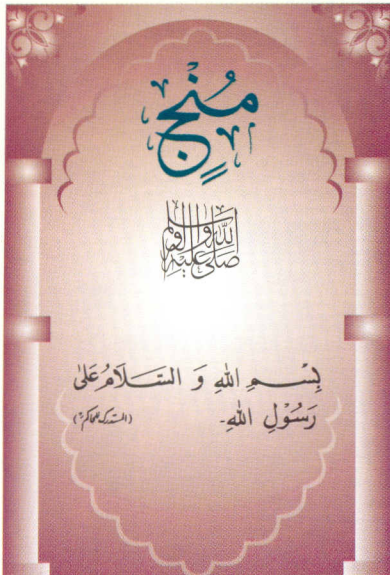 مُنْجٍ
صَلَّى اللّٰهُ عَلَيْهِ وَاٰلِهٖ وَسَلَّمَ
بِسْمِ اللّٰهِ وَ السَّلَامُ عَلٰی
رَسُوْلِ اللّٰهِ۔ (المستدرک للحاکمؒ)